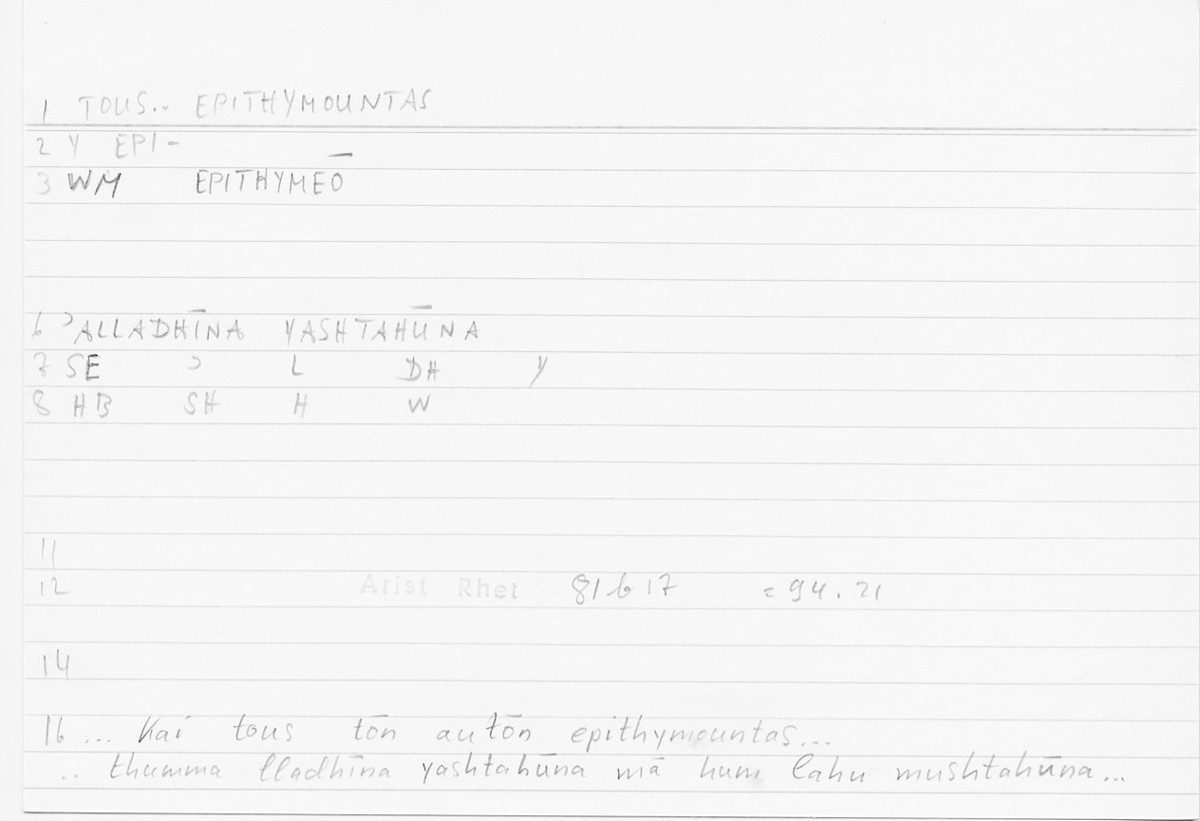 1 TOUS.. EPITHYMOUNTAS
2 Y EPI-
3 WM EPITHYMEŌ
6 ʾALLADHĪNA YASHTAHŪNA
7 SE ʾ L DH Y
8 HB SH H W
11
12 Arist Rhet 81b17 = 94.21
14
16 ... Kai tous tōn autōn epithymountas...
.. thumma lladhīna yashtahūna mā hum lahu mushtahūna...